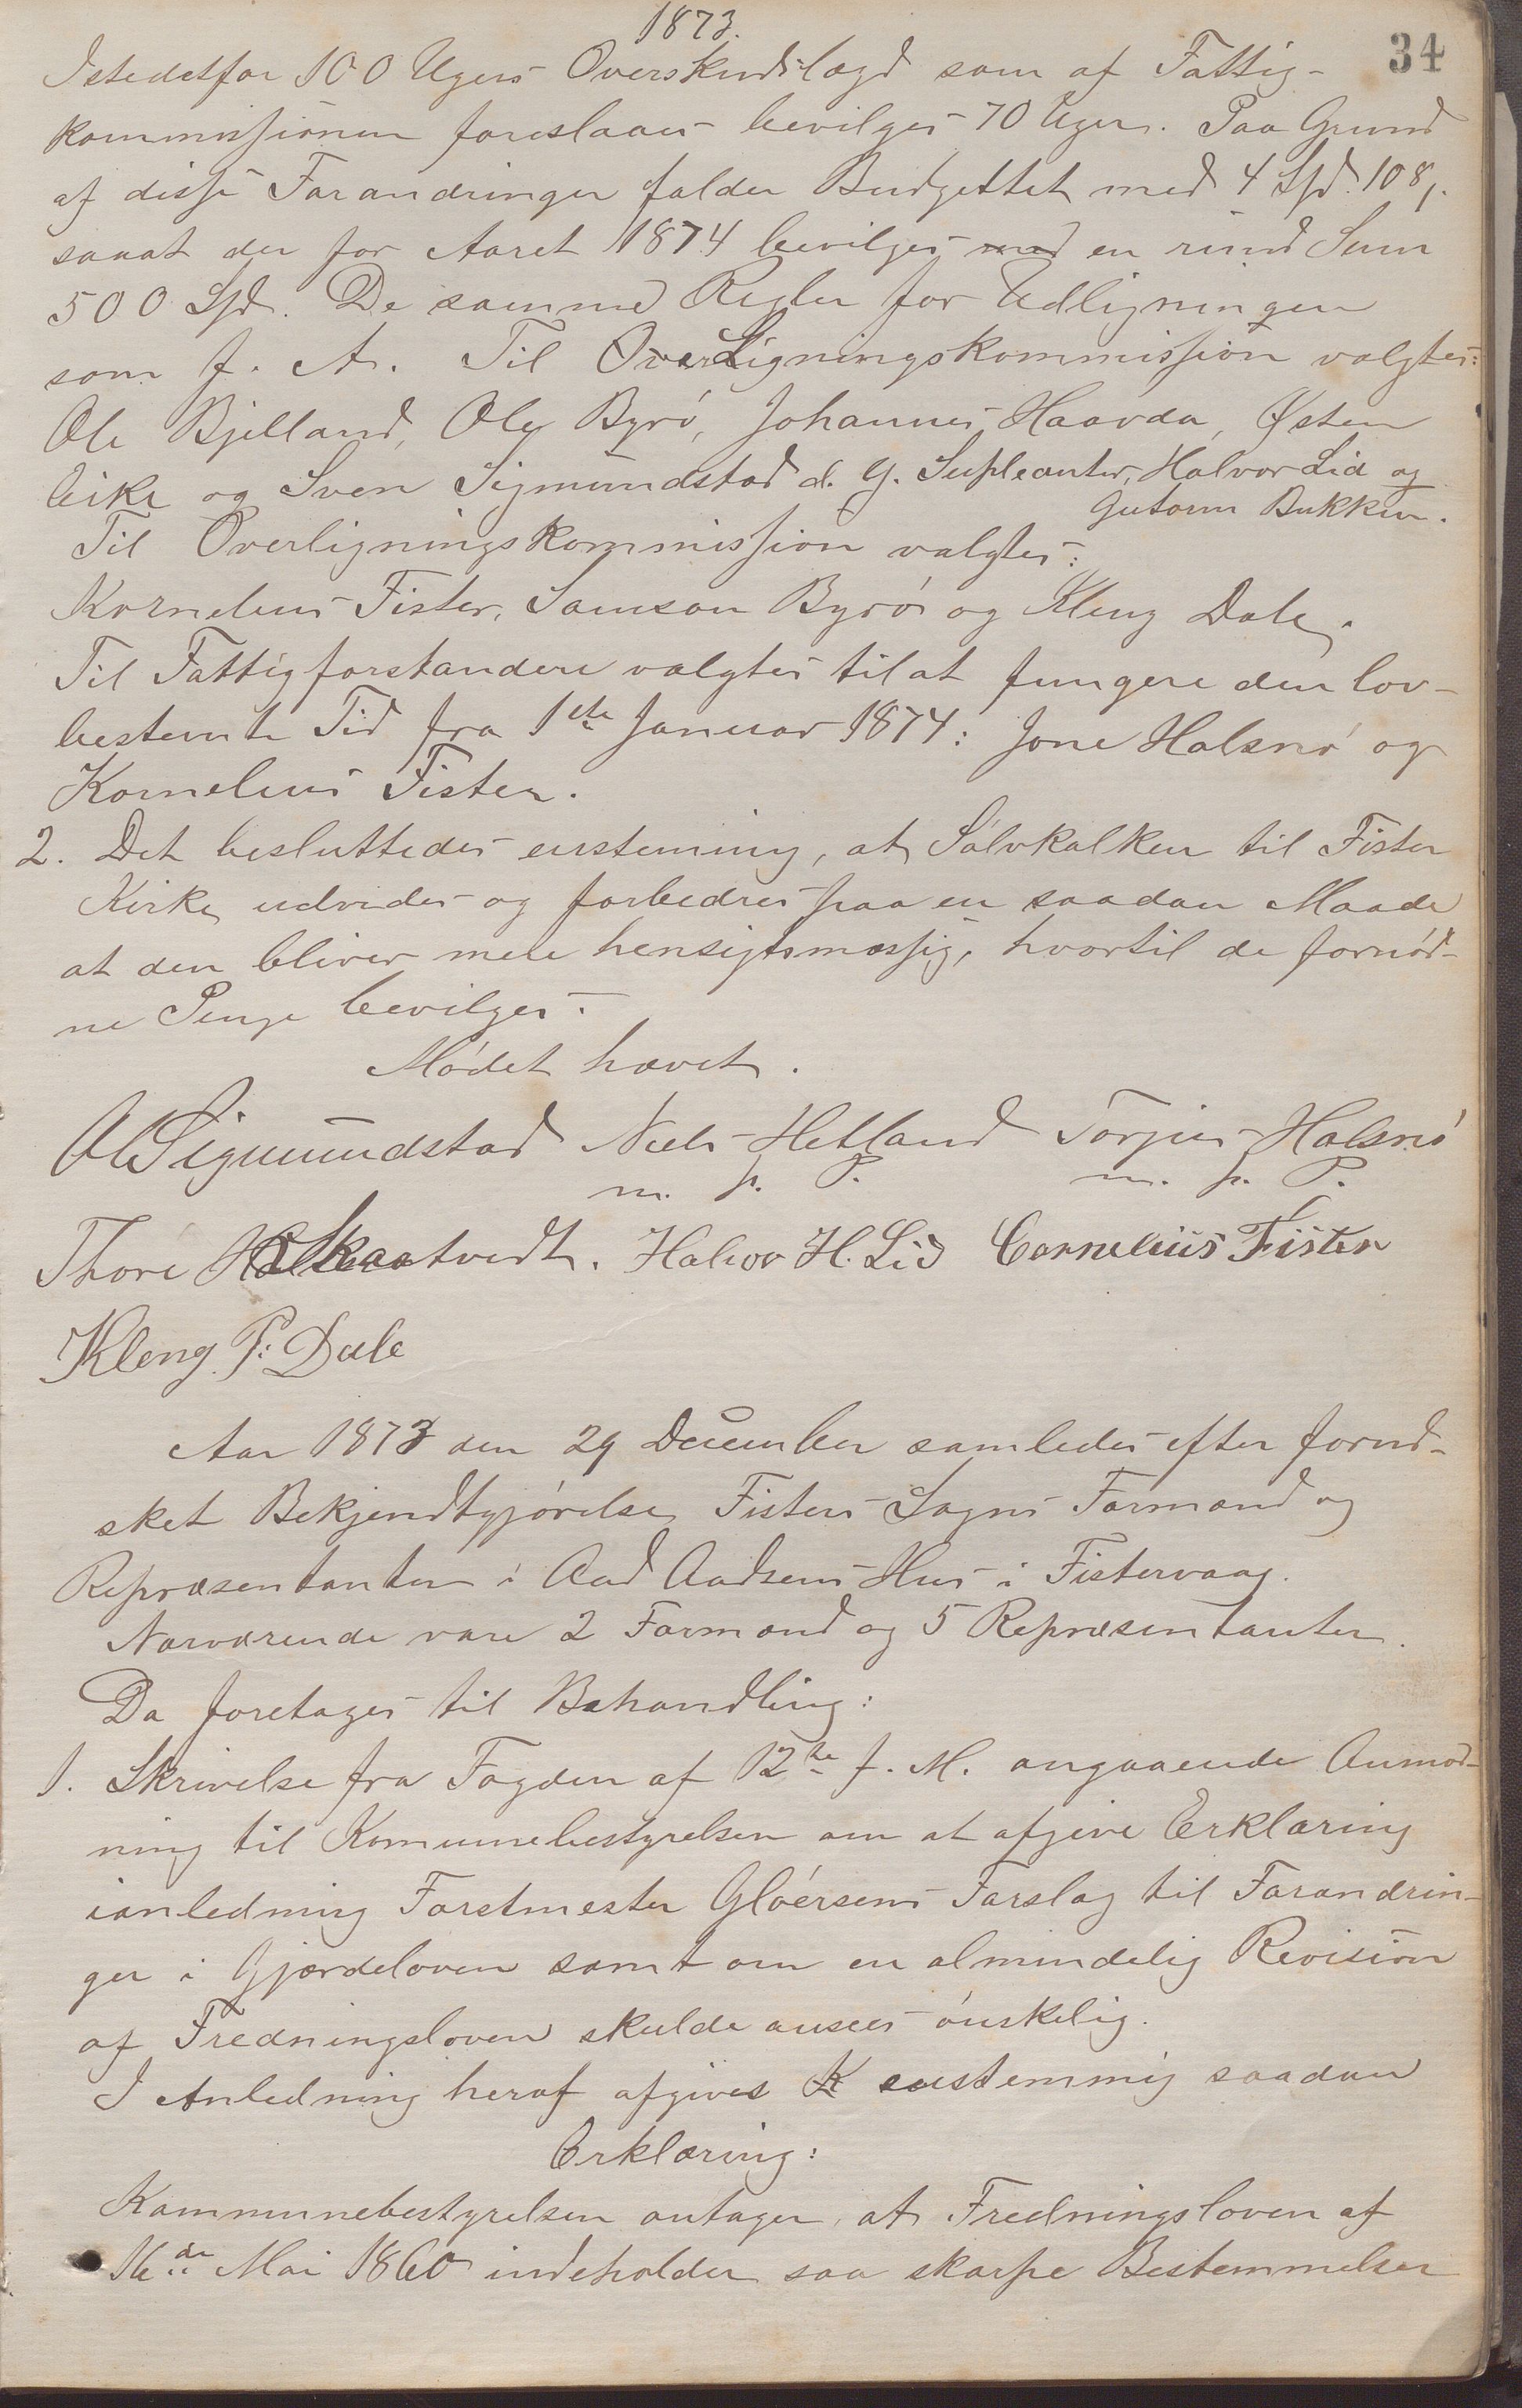 1873.
34
Istedetfor 100 Ugers Overskudslægd som af Fattig-
kommissionen foreslaaes bevilges 70 Uger. Paa Grund
af disse Forandringer falder Budgettet med 4 Spd. 108,
saaat der for Aaret 1874 bevilges med en rund Sum
500 Spd. De samme Regler for Udligningen
som f. A. Til Ligningskommission valgtes:
Ole Bjelland, Ole Byrö, Johannes Haavda, Østen
Eike og Sven Sigmundstad d. y. Supleanter, Halvor Lid og
Gutorm Bukken.
Til Overligningskommission valgtes:
Kornelius Fister, Samson Byrö og Kleng Dale.
Til Fattigforstandere valgtes til at fungere den lov-
bestemte Tid fra 1ste Januar 1874: Jone Halsnö og
Kornelius Fister.
2. Det besluttedes enstemmig, at Sölvkalken til Fister
Kirke udvides og forbedres paa en saadan Maade
at den bliver mere hensigtsmæssig, hvortil de fornöd-
ne Penge bevilges.
Mödet hævet.
Ol Sigmundstad Niels Hetland Torjus Halsnö
m. p. P. m. p. P.
Thore Skaatvedt. Halvor H. Lid Cornelius Fister
Kleng P: Dale
Aar 1873 den 29 December samledes efter forud-
sket Bekjendtgjörelse Fisters Sogns Formænd og
Repræsentanter i Aad Aadsens Hus i Fistervaag.
Nærværende vare 2 Formænd og 5 Repræsentanter.
Da foretages til Behandling:
1. Skrivelse fra Fogden af 12te f. M. angaaende Anmod-
ning til Komunebestyrelsen om at afgive Erklæring
ianledning Forstmester Glöersens Forslag til Forandrin-
ger i Gjærdeloven samt om en almindelig Revision
af Fredningsloven skulde ansees önskelig.
I Anledning heraf afgives K eenstemmig saadan
Erklæring:
Kommunebestyrelsen antager, at Fredningsloven af
16de Mai 1860 indeholder saa skarpe Bestemmelser